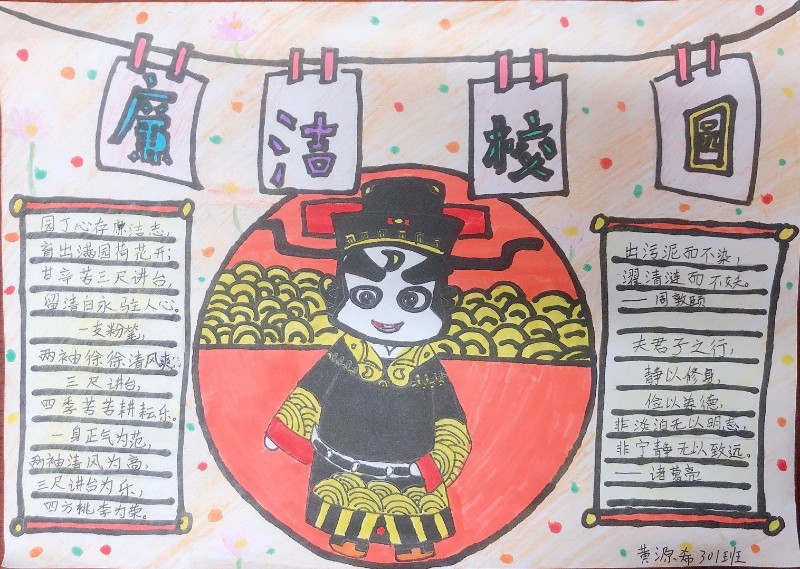 廉洁校园
园丁心存廉洁志,
育出满园荷花开;
甘辛苦三尺讲台,
留清白永驻人心。
一支粉笔,
两袖徐徐清风爽
三尺讲台,
四季苦苦耕耘乐。
一身正气为范,
两袖清风为高,
三尺讲台为乐,
四方桃李为荣。
出污泥而不染,
濯清涟而不妖。
——周敦颐
夫君子之行,
静以修身,
俭以养德,
非淡泊无以明志,
非宁静无以致远。
——诸葛亮
黄源希 301班